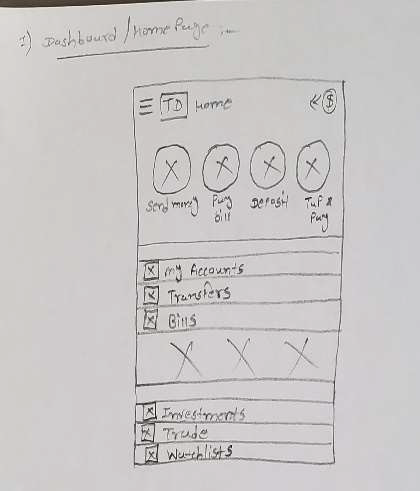 1) Dashboard/Home Page :-
TD Home «$
Send money Pay Bill Deposit Tap & Pay
My Accounts
Transfers
Bills
Investments
Trade
Watchlists